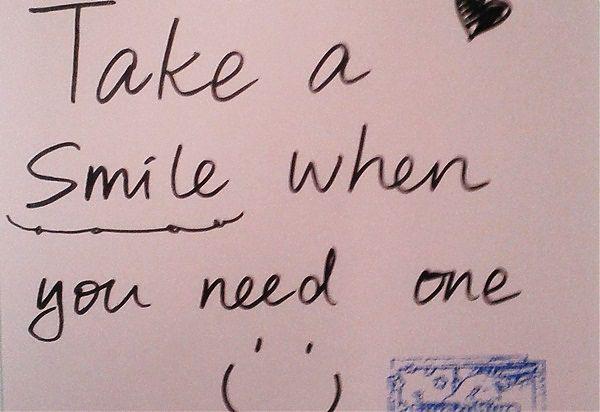 Take a
Smile when
you need one